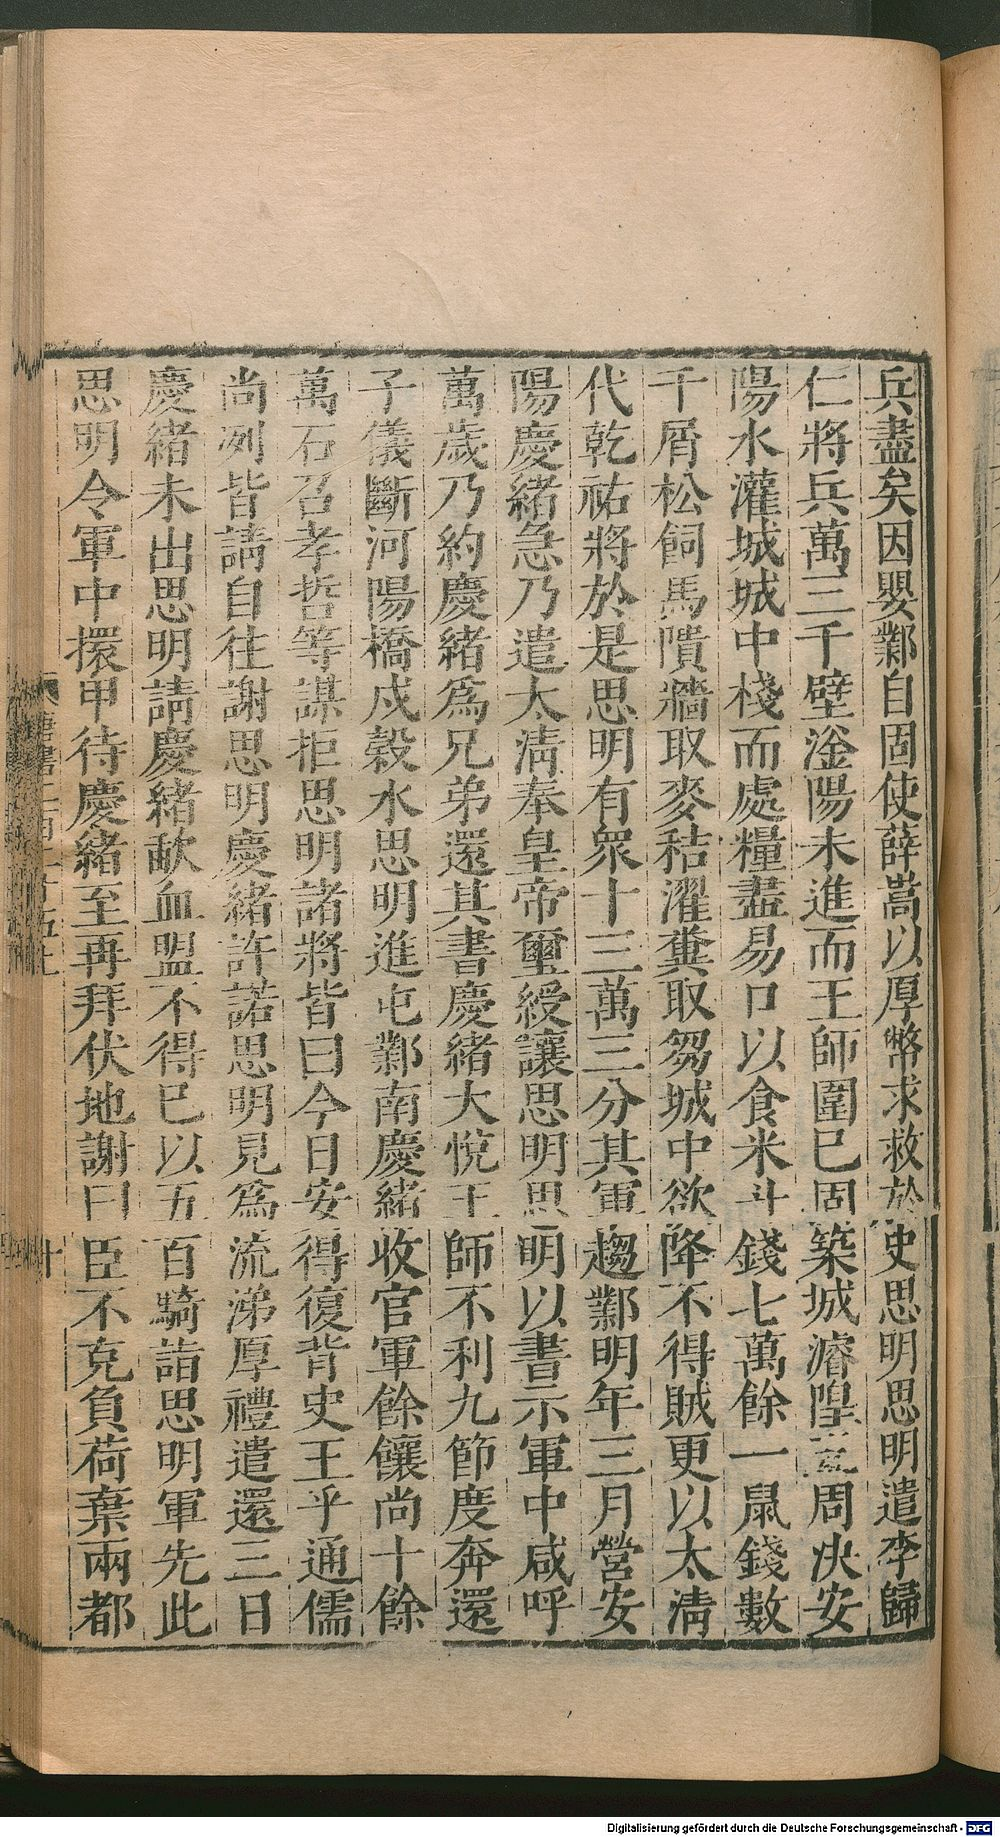 兵盡矣因嬰鄴自固使薛嵩以厚幣求救於史思明思明遣李歸
仁將兵萬三千壁滏陽未進而王師圍已固築城濬隍三周决安
陽水灌城城中棧而處糧盡易口以食米斗錢七萬餘一鼠錢數
千屑松飼馬隤牆取麥秸濯糞取芻城中欲降不得賊更以太清
代乾祐將於是思明有眾十三萬三分其軍趨鄴明年三月營安
陽慶緒急乃遣太清奉皇帝璽綬讓思明思明以書示軍中咸呼
萬歲乃約慶緒爲兄弟還其書慶緒大悅王師不利九節度奔還
子儀斷河陽橋戍穀水思明進屯鄴南慶緒收官軍餘饟尚十餘
萬石召孝哲等謀拒思明諸將皆曰今日安得復背史王乎通儒
尚列皆請自往謝思明慶緒許諾思明見爲流涕厚禮遣還三日
慶緒未出思明請慶緒歃血盟不得已以五百騎詣思明軍先此
思明令軍中擐甲待慶緒至再拜伏地謝曰臣不克負荷棄兩都
十
Digitalisierung gefördert durch die Deutsche Forschungsgemeinschaft - DFG